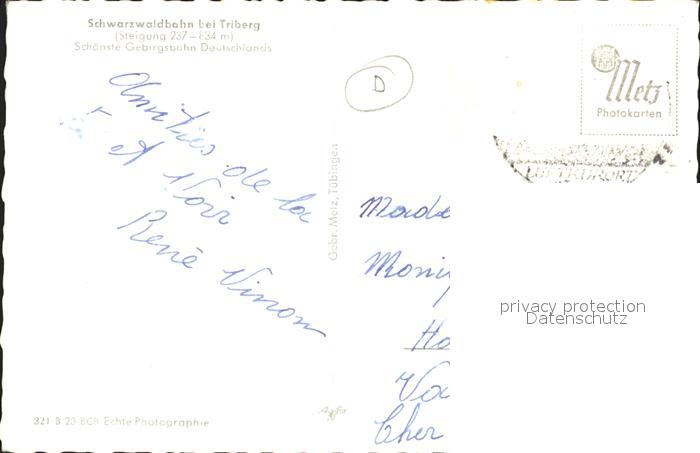 Schwarzwaldbahn bei Triberg
(Steigung 237–834 m)
Schönste Gebirgsbahn Deutschlands
D
Metz
Photokarten
LUFTKURORT
Amitiés de la
F et Noir
René Vinon
Gebr. Metz, Tübingen
Made
Moni
Ho
Va
Cher
privacy protection
Datenschutz
321 B 23 BCR Echte Photographie
Agfa